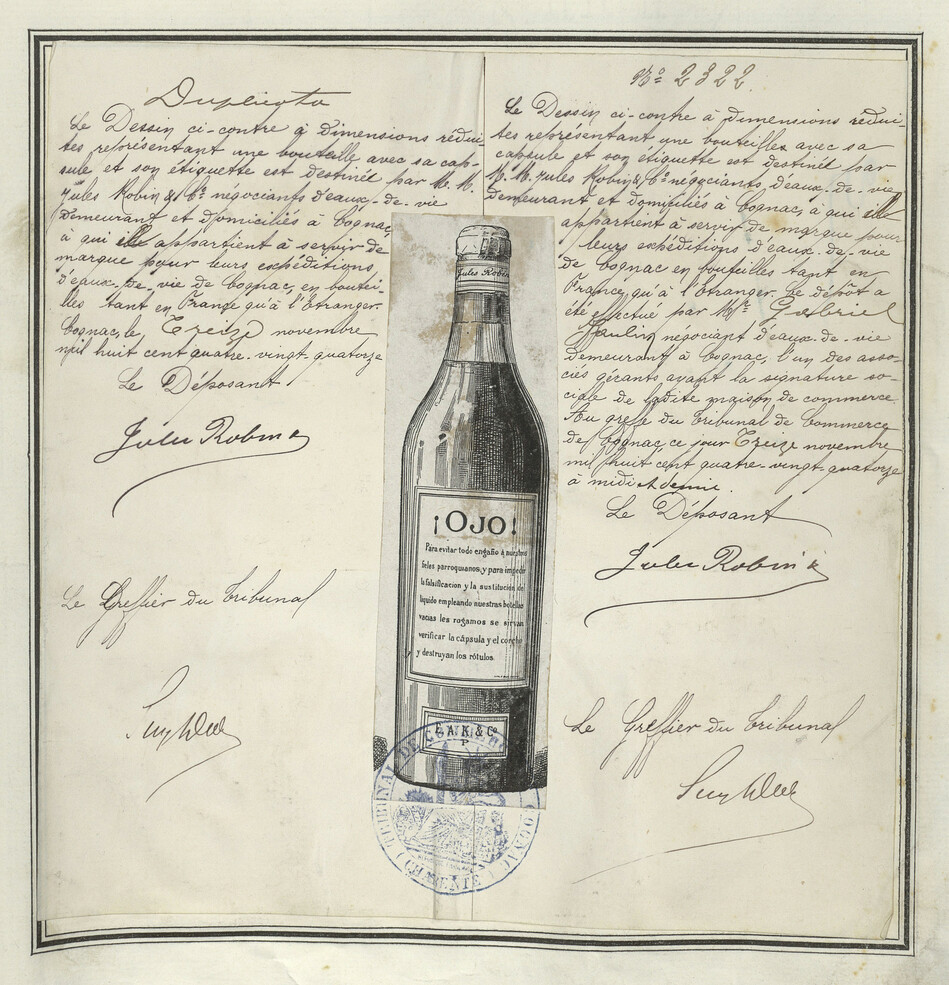 Duplicata
Le Dessin ci-contre à dimensions rédui-
tes représentant une bouteille avec sa cap-
sule et son étiquette est destinéé par M. M.
Jules Robin & Cº négociants d'eaux-de-vie
demeurant et domiciliés à Cognac,
à qui elle appartient à servir de
marque pour leurs expéditions
d'eaux-de-vie de Cognac, en bouteil-
les tant en France qu'à l'Etranger.
Cognac, le Treize novembre
mil huit cent quatre-vingt quatorze
Le Déposant
Jules Robin &
Le Greffier du Tribunal
Nº 2322.
Le Dessin ci-contre à dimensions rédui-
tes représentant une bouteille avec sa
capsule et son étiquette est destinéé par
M. M. Jules Robin & Cº négociants d'eaux-de-vie
demeurant et domiciliés à Cognac, à qui elle
appartient à servir de marque pour
leurs expéditions d'eaux-de-vie
de Cognac en bouteilles tant en
France qu'à l'Etranger. Le dépôt a
été effectué par Mr Gabriel
Paulin négociant d'eaux-de-vie
demeurant à Cognac, l'un des asso-
ciés gérants ayant la signature so-
ciale de ladite maison de commerce.
Au greffe du Tribunal de Commerce
de Cognac, ce jour Treize novembre
mil huit cent quatre-vingt-quatorze
à midi et demie.
Le Déposant
Jules Robin &
Le Greffier du Tribunal
Jules Robin
¡OJO!
Para evitar todo engaño á nuestros
fieles parroquianos y para impedir
la falsificacion y la sustitución del
liquido empleando nuestras botellas
vacias les rogamos se sirvan
verificar la cápsula y el corcho
y destruyan los rótulos.
E.A.K & Cº
P
TRIBUNAL DE COMMERCE
COGNAC
(CHARENTE)